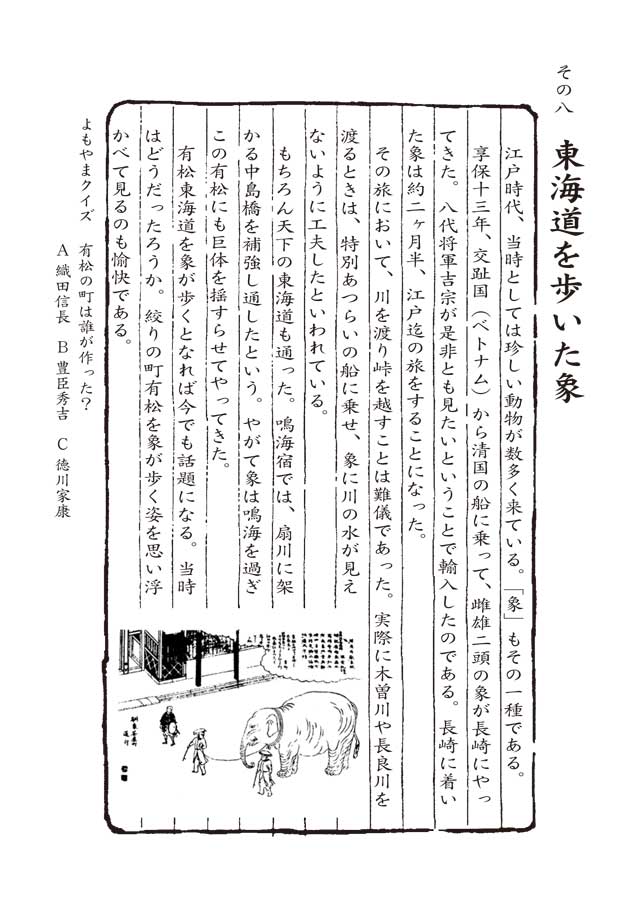 その八　東海道を歩いた象
江戸時代、当時としては珍しい動物が数多く来ている。「象」もその一種である。
享保十三年、交趾国（ベトナム）から清国の船に乗って、雌雄二頭の象が長崎にやっ
てきた。八代将軍吉宗が是非とも見たいということで輸入したのである。長崎に着い
た象は約二ヶ月半、江戸迄の旅をすることになった。
その旅において、川を渡り峠を越すことは難儀であった。実際に木曽川や長良川を
渡るときは、特別あつらいの船に乗せ、象に川の水が見え
ないように工夫したといわれている。
もちろん天下の東海道も通った。鳴海宿では、扇川に架
かる中島橋を補強し通したという。やがて象は鳴海を過ぎ
この有松にも巨体を揺すらせてやってきた。
有松東海道を象が歩くとなれば今でも話題になる。当時
はどうだったろうか。絞りの町有松を象が歩く姿を思い浮
かべて見るのも愉快である。
よもやまクイズ　有松の町は誰が作った？
A 織田信長　B 豊臣秀吉　C 徳川家康